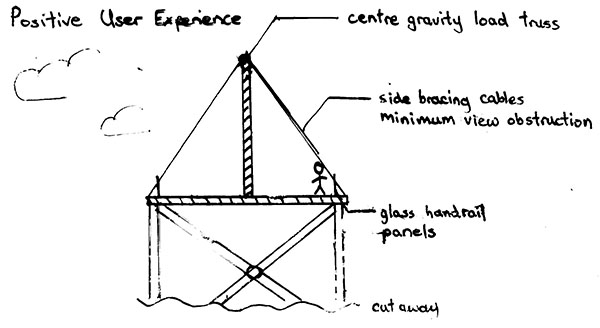 Positive User Experience
centre gravity load truss
side bracing cables
minimum view obstruction
glass handrail
panels
cut away